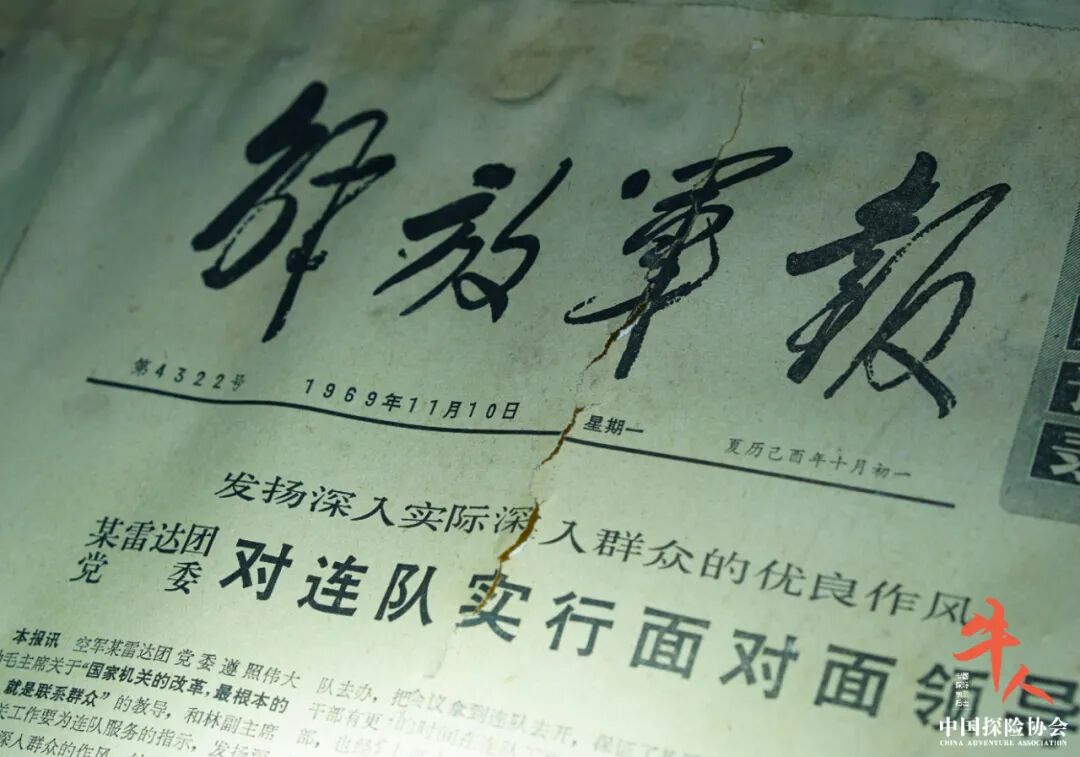 解放军报
第4322号 1969年11月10日 星期一 夏历己酉年十月初一
发扬深入实际深入群众的优良作风
某雷达团
党委
对连队实行面对面领导
本报讯 空军某雷达团党委遵照伟大
毛主席关于“国家机关的改革,最根本的
就是联系群众”的教导,和林副主席
关工作要为连队服务的指示,发扬深
深入群众的作风
队去办,把会议拿到连队去开,保证了
干部有更的时间在连队工
部,也经
牛人
中国探险协会
CHINA ADVENTURE ASSOCIATION